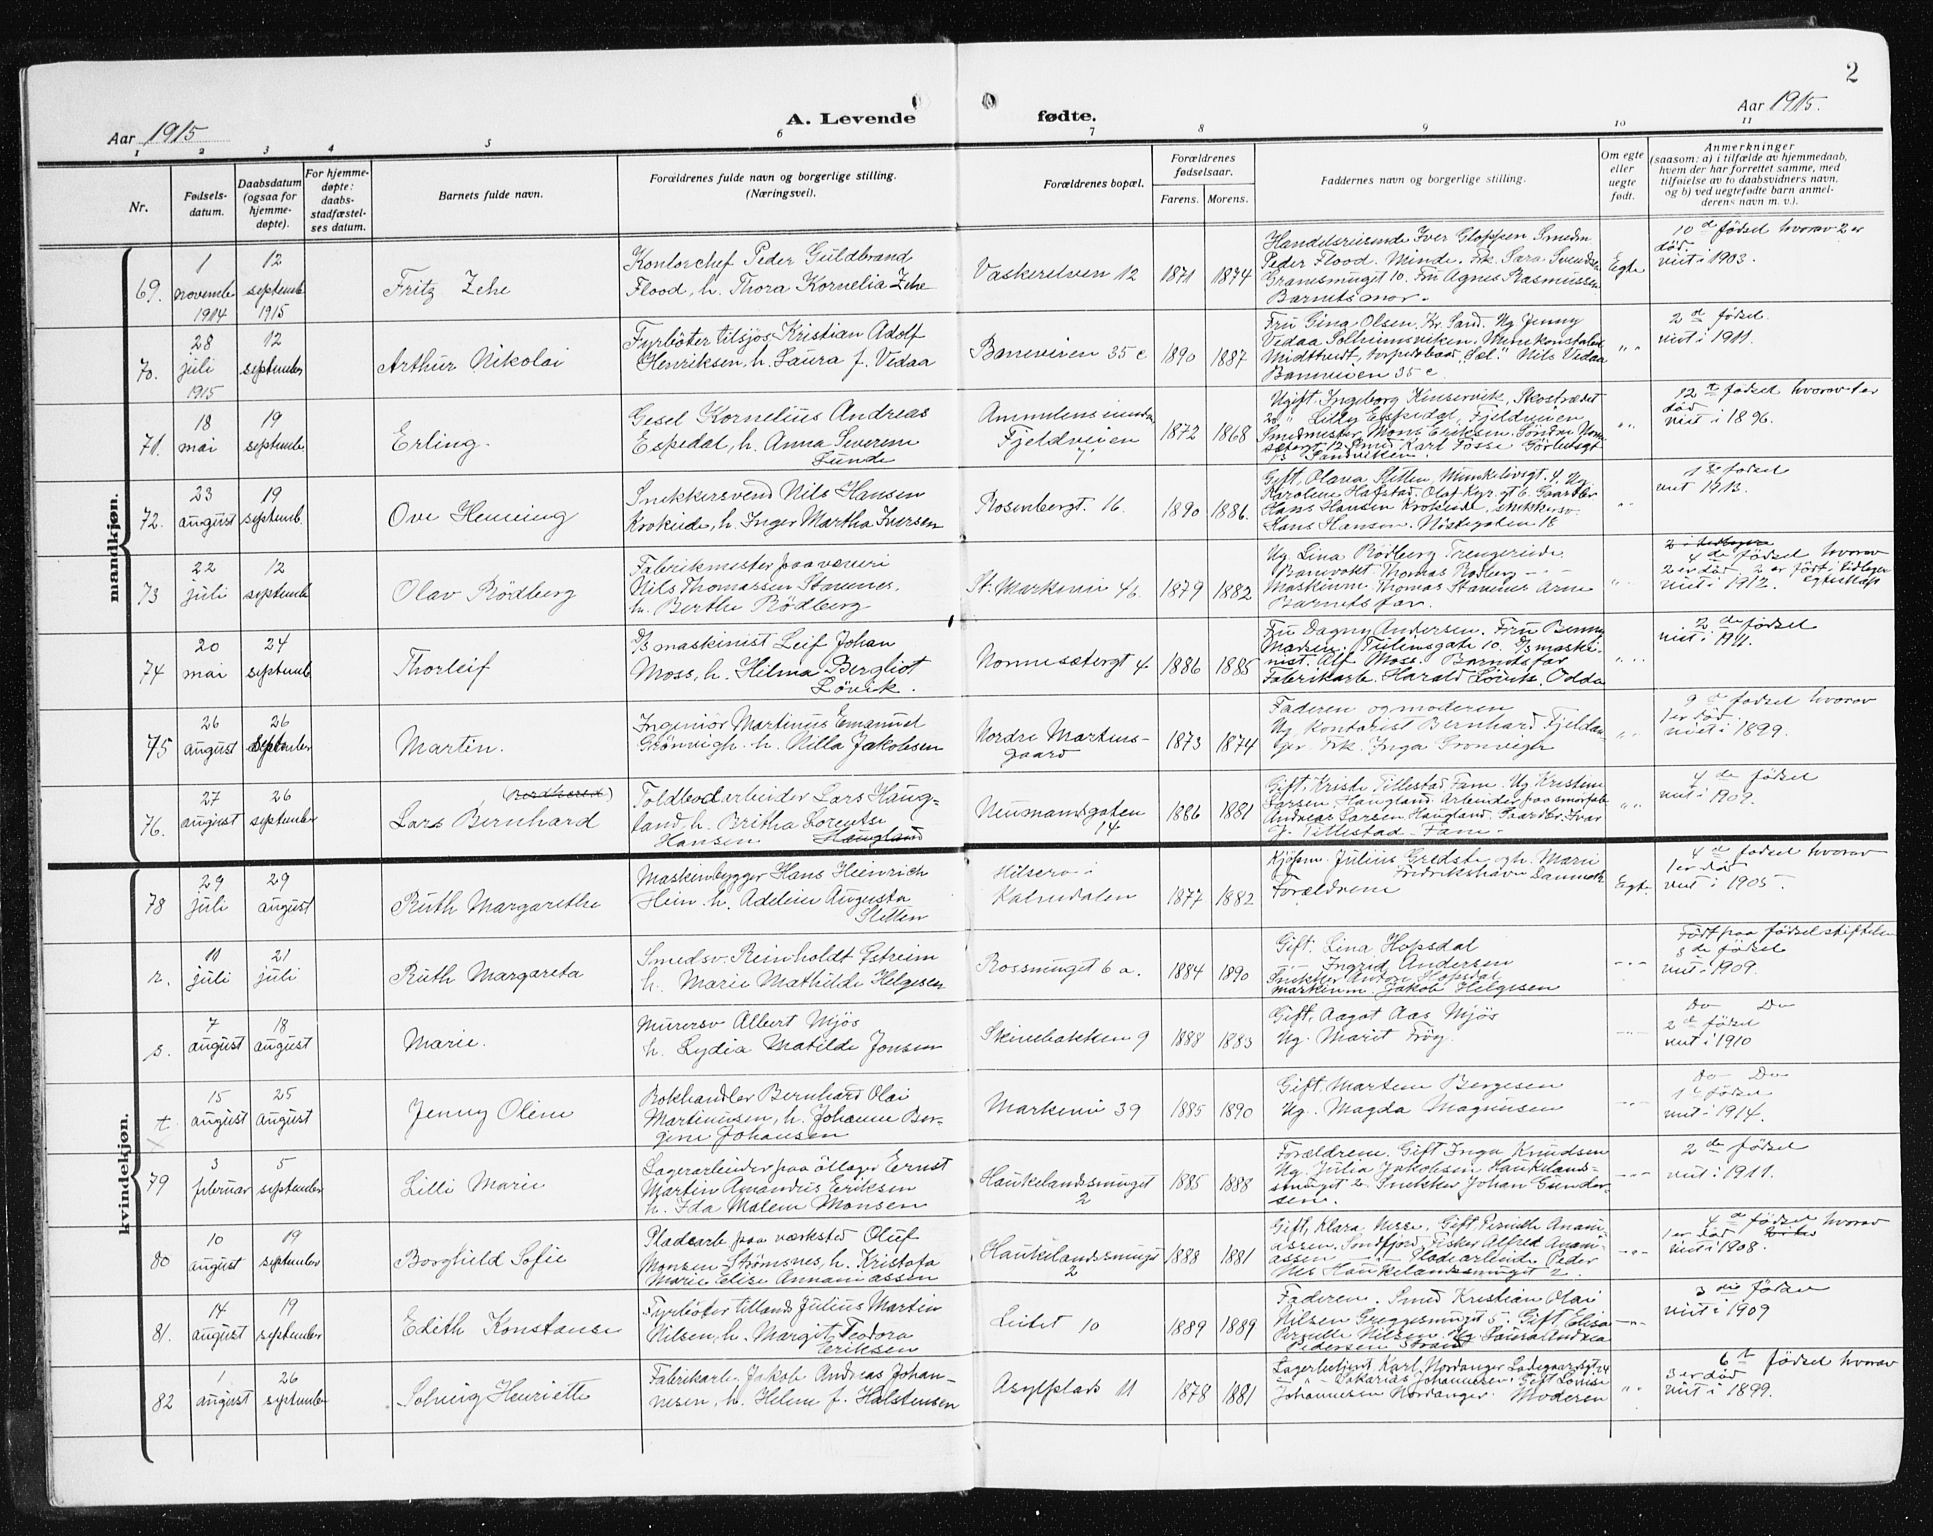 2
Aar 1915
A. Levende
fødte.
Aar 1915.
1 2 3 4 5 6 7 8 9 10 11
Nr.
Fødsels-
datum.
Daabsdatum
(ogsaa for
hjemme-
døpte).
For hjemme-
døpte:
daabs-
stadfæstel-
ses datum.
Barnets fulde navn.
Forældrenes fulde navn og borgerlige stilling.
(Næringsvei).
Forældrenes bopæl.
Forældrenes
fødselsaar.
Farens. Morens.
Faddernes navn og borgerlige stilling.
Om egte
eller
uegte
født.
Anmerkninger
(saasom: a) i tilfælde av hjemmedaab,
hvem der har forrettet samme, med
tilføielse av to daabsvidners navn.
og b) ved uegtefødte barn anmel-
derens navn m. v.).
mandkjøn.
69.
1
novembe
1914
12
septemb
1915
Fritz Zehe
Kontorchef Peder Guldbrand
Flood, h. Thora Kornelia Zehe
Vaskerelven 12
1871 1874
Handelsreisende Iver Gloppen Smedm
Peder Flood. Minde. Frk. Sara Svendsen
Granesmuget 10. Fru Agnes Rasmussen
Barnets mor.
Egte
10 de fødsel hvorav 2 er
død.
viet i 1903.
70.
28
juli
1915
12
september
Arthur Nikolai
Fyrbøter tilsjøs Kristian Adolf
Henriksen, h. Laura f. Vedaa
Baneveien 35 c
1890 1887
Fru Gina Olsen, Kr. Sand. Ug Jenny
Vedaa Solheimsviken. Minekonstabel
Midttveit, torpedobaad "Sæl" Nils Vedaa
Baneveien 35 c
" "
2 d fødsel
viet i 1911.
71.
18
mai
19
septembe
Erling.
Gesel Kornelius Andreas
Espedal, h. Anna Severine
Lunde
Fjeldveien
7
1872 1868
Ugift Ingeborg Kinservik, Skostrædet
20 " Lilly Espedal, Fjeldveien
Smedmester Mons Eriksen
12 Smed Karl Fosse
Sandviken.
" "
12 te fødsel hvorav 1 er
død
viet i 1896.
72.
23
august
19
septemb.
Ove Henning
Snekkersvend Nils Hansen
Krokeide, h. Inger Martha Iversen
Rosenbergt. 16.
1890 1886.
Gift, Olava Sletten, Munkelivsgt. 4. Ug
Karoline Hafstad, Olaf Kyr. gt 6. Gaardbr
Hans Hansen Krokeide, snekkersv.
Hans Hansen. Nøstegaten 18
" "
1 ste fødsel
viet 1913.
73
22
juli
12
septembe
Olav Rödberg
Fabrikmester paa væveri
Nils Thomassen Stavenes,
h. Berthe Rödberg
St. Markevei 46.
1879 1882
Ug. Lina Rödberg Trengereide
Banevokt. Thomas Rödberg - -
Maskinm. Thomas Stavenes Arne
Barnets far.
" "
4 de fødsel hvorav
2 er død, 2 er født i tidliger
viet i 1912. egteskap
74
20
mai
24
septembe
Thorleif
D/S maskinist Leif Johan
Moss, h. Hilma Bergliot
Lövik.
Nonnesætergt 4.
1886 1885
Fru Dagny Andersen. Fru Benny
Madsen. 10. D/S maski-
nist. Alf Moss. Barnets far
Fabrikarb. Harald Lövik, Odda
" "
2 de fødsel
viet i 1911.
75
26
august
26
september
Martin.
Ingeniør Martinus Emanuel
Grönvigh. h. Nilla Jakobsen
Nordre Martens-
gaard
1873 1874
Faderen og moderen
Ug Kontorist Bernhard Fjeldan
ger. Frk. Inga Gronviger
" "
9 de fødsel hvorav
1 er død.
viet i 1899.
76.
27
august
26
september
Lars Bernhard
Toldbodarbeider Lars Haug-
land, h. Britha Lorentse
Hansen Haugland
Neumannsgaten
14
1886 1881
Gift. Kriste Tillestad Fane. Ug Kristine
Larsen Haugland. Arbeider paa smörfab.
Andreas Larsen Haugland. Gaardbr. Ivar
J. Tillestad - Fane -
" "
4 de fødsel
viet i 1909.
kvindekjøn.
78
29
juli
29
august
Ruth Margarethe
Maskinbygger Hans Heinrich
Hein. h. Adeline Augusta
Sletten
Hilserø i
Kalvedalen
1877 1882
Kjøbm. Julius Gredste og h. Marie
Fredrikshavn Danmark
Forældrene
Egte.
4 de fødsel hvorav
1 er død
viet i 1905.
r.
11
juli
21
juli
Ruth Margareta
Smedsv. Reinholdt Ystreim
h. Marie Mathilde Helgesen
Rossmuget 6 a.
1884 1890
Gift. Lina Hopsdal
" Ingrid Andersen
Snekker Anton Hopsdal
maskinm. Jakob Helgesen
- " -
Født paa fødselsstiftelsen
3 de fødsel
viet i 1909.
s.
7
august
18
august
Marie.
Murersv Albert Mjös
h. Lydia Matilde Jonsen
Skivebakken 9
1888 1883
Gift, Aagot Aas Mjös
Ug. Marit Tröy.
- " -
Do Do
2 de fødsel
viet i 1910
t.
15
august
25
august
Jenny Oline
Bokhandler Bernhard Olai
Martinussen, h. Johanne Ber-
gine Johansen
Markevei 39
1885 1890
Gift, Marten Bergesen
Ug. Magda Magnusen
- " -
Do - Do
1 ste fødsel
viet i 1914.
79
3
februar
5
september
Lilli Marie
Lagerarbeider paa öllager Ernst
Martin Amandus Eriksen
h. Ida Malene Monsen
Haukelandssmuget
2
1885 1888
Forældrene. Gift Inga Knudsen
Ug. Julia Jakobsen Haukelands-
smuget 2. Snekker Johan Gunder-
sen.
- " -
2 de fødsel
viet i 1911.
80
10
august
19
september
Borghild Sofie
Pladearb paa værksted Oluf
Monsen Strömsnes, h. Kristofa
Marie Elise Annaniassen
Haukelandssmuget
2
1888 1881
Gift, Klara Nesse, Gift, Pernille Anani-
assen, Söndfjord, Fisker Alfred Anani-
assen. Pladearbeider Peder
Nes Haukelandssmuget 2.
- " -
4 de fødsel hvorav
1 er død
viet i 1908.
81.
14
august
19
september
Edith Konstanse
Fyrbøter tillands Julius Martin
Nilsen, h. Margit Teodora
Eriksen
Leitet 10
1889 1889
Faderen. Smed Kristian Olai
Nilsen Greggesmuget 5. Gift Elisa
Pernille Nilsen. Ug. Laura Andrea
Pedersen Strand
- " -
3 die fødsel
viet i 1909
82
1
august
26
september
Solveig Henriette
Fabrikarb. Jakob Andreas Johan-
nesen, h. Helene f. Halstensen
Asylplads 11
1878 1881
Lagerbetjent, Karl Nordanger Ladegaardsgt 24
- Sakarias Johannesen. Gift Lovise
Johannesen Nordanger. Moderen
" "
6 te fødsel hvorav
3 er død
viet i 1899.